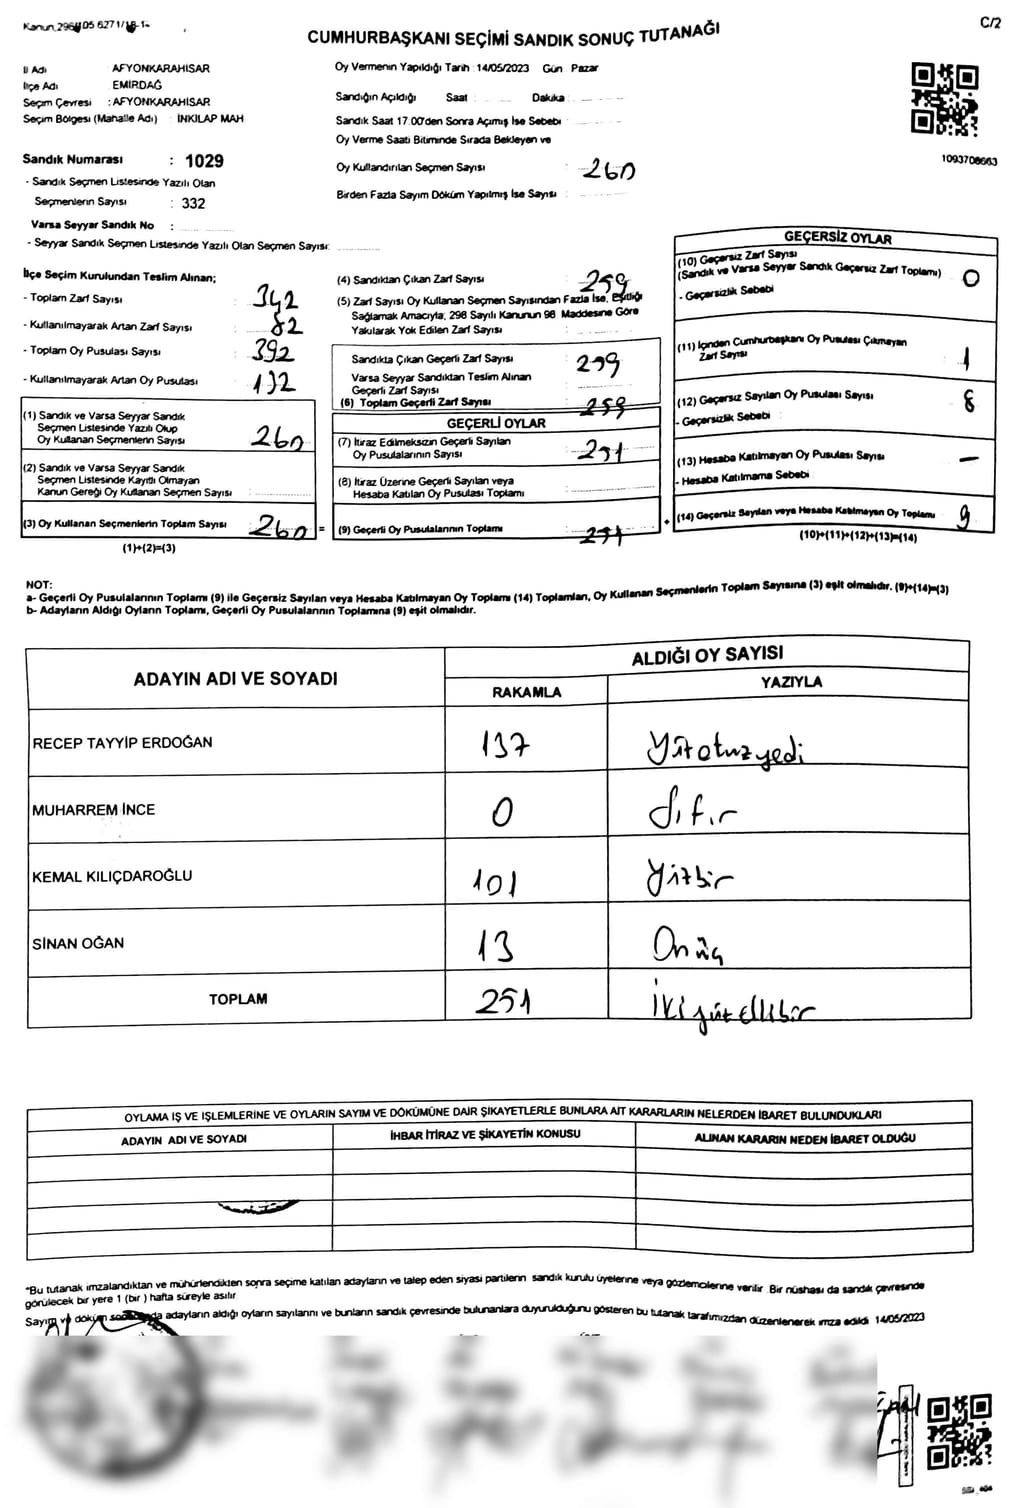 C/2
CUMHURBAŞKANI SEÇİMİ SANDIK SONUÇ TUTANAĞI
İl Adı AFYONKARAHİSAR
İlçe Adı EMİRDAĞ
Seçim Çevresi : AFYONKARAHİSAR
Seçim Bölgesi (Mahalle Adı) : İNKILAP MAH
Oy Vermenin Yapıldığı Tarih : 14/05/2023 Gün Pazar
Sandığın Açıldığı Saat : Dakika :
Sandık Saat 17.00'den Sonra Açımış İse Sebebi :
Oy Verme Saati Bitiminde Sırada Bekleyen ve
Oy Kullandırılan Seçmen Sayısı : 260
Birden Fazla Sayım Döküm Yapılmış İse Sayısı :
1093708663
Sandık Numarası : 1029
- Sandık Seçmen Listesinde Yazılı Olan
Seçmenlerin Sayısı : 332
Varsa Seyyar Sandık No :
- Seyyar Sandık Seçmen Listesinde Yazılı Olan Seçmen Sayısı:
İlçe Seçim Kurulundan Teslim Alınan;
- Toplam Zarf Sayısı : 342
- Kullanılmayarak Artan Zarf Sayısı : 82
- Toplam Oy Pusulası Sayısı : 392
- Kullanılmayarak Artan Oy Pusulası : 132
(1) Sandık ve Varsa Seyyar Sandık
Seçmen Listesinde Yazılı Olup
Oy Kullanan Seçmenlerin Sayısı : 260
(2) Sandık ve Varsa Seyyar Sandık
Seçmen Listesinde Kayıtlı Olmayan
Kanun Gereği Oy Kullanan Seçmen Sayısı :
(3) Oy Kullanan Seçmenlerin Toplam Sayısı : 260 =
(1)+(2)=(3)
(4) Sandıktan Çıkan Zarf Sayısı : 259
(5) Zarf Sayısı Oy Kullanan Seçmen Sayısından Fazla İse, Eşitliği
Sağlamak Amacıyla; 298 Sayılı Kanunun 98. Maddesine Göre
Yakılarak Yok Edilen Zarf Sayısı :
Sandıkta Çıkan Geçerli Zarf Sayısı : 259
Varsa Seyyar Sandıktan Teslim Alınan
Geçerli Zarf Sayısı :
(6) Toplam Geçerli Zarf Sayısı : 259
GEÇERLİ OYLAR
(7) İtiraz Edilmeksizin Geçerli Sayılan
Oy Pusulalarının Sayısı : 251
(8) İtiraz Üzerine Geçerli Sayılan veya
Hesaba Katılan Oy Pusulası Toplamı :
(9) Geçerli Oy Pusulalarının Toplamı : 251 +
GEÇERSİZ OYLAR
(10) Geçersiz Zarf Sayısı
(Sandık ve Varsa Seyyar Sandık Geçersiz Zarf Toplamı) : 0
- Geçersizlik Sebebi :
(11) İçinden Cumhurbaşkanı Oy Pusulası Çıkmayan
Zarf Sayısı : 1
(12) Geçersiz Sayılan Oy Pusulası Sayısı : 8
- Geçersizlik Sebebi :
(13) Hesaba Katılmayan Oy Pusulası Sayısı : -
- Hesaba Katılmama Sebebi :
(14) Geçersiz Sayılan veya Hesaba Katılmayan Oy Toplamı : 9
(10)+(11)+(12)+(13)=(14)
NOT:
a- Geçerli Oy Pusulalarının Toplamı (9) ile Geçersiz Sayılan veya Hesaba Katılmayan Oy Toplamı (14) Toplamları, Oy Kullanan Seçmenlerin Toplam Sayısına (3) eşit olmalıdır. (9)+(14)=(3)
b- Adayların Aldığı Oyların Toplamı, Geçerli Oy Pusulalarının Toplamına (9) eşit olmalıdır.
ADAYIN ADI VE SOYADI ALDIĞI OY SAYISI
RAKAMLA YAZIYLA
RECEP TAYYİP ERDOĞAN 137 Yüzotuzyedi
MUHARREM İNCE 0 Sıfır
KEMAL KILIÇDAROĞLU 101 Yüzbir
SİNAN OĞAN 13 Onüç
TOPLAM 251 İkiyüzellibir
OYLAMA İŞ VE İŞLEMLERİNE VE OYLARIN SAYIM VE DÖKÜMÜNE DAİR ŞİKAYETLERLE BUNLARA AİT KARARLARIN NELERDEN İBARET BULUNDUKLARI
ADAYIN ADI VE SOYADI İHBAR İTİRAZ VE ŞİKAYETİN KONUSU ALINAN KARARIN NEDEN İBARET OLDUĞU
*Bu tutanak imzalandıktan ve mühürlendikten sonra seçime katılan adayların ve talep eden siyasi partilerin sandık kurulu üyelerine veya gözlemcilerine verilir. Bir nüshası da sandık çevresinde
görülecek bir yere 1 (bir ) hafta süreyle asılır.
Sayım ve döküm adayların aldığı oyların sayılarını ve bunların sandık çevresinde bulunanlara duyurulduğunu gösteren bu tutanak tarafımızdan düzenlenerek imza edildi. 14/05/2023